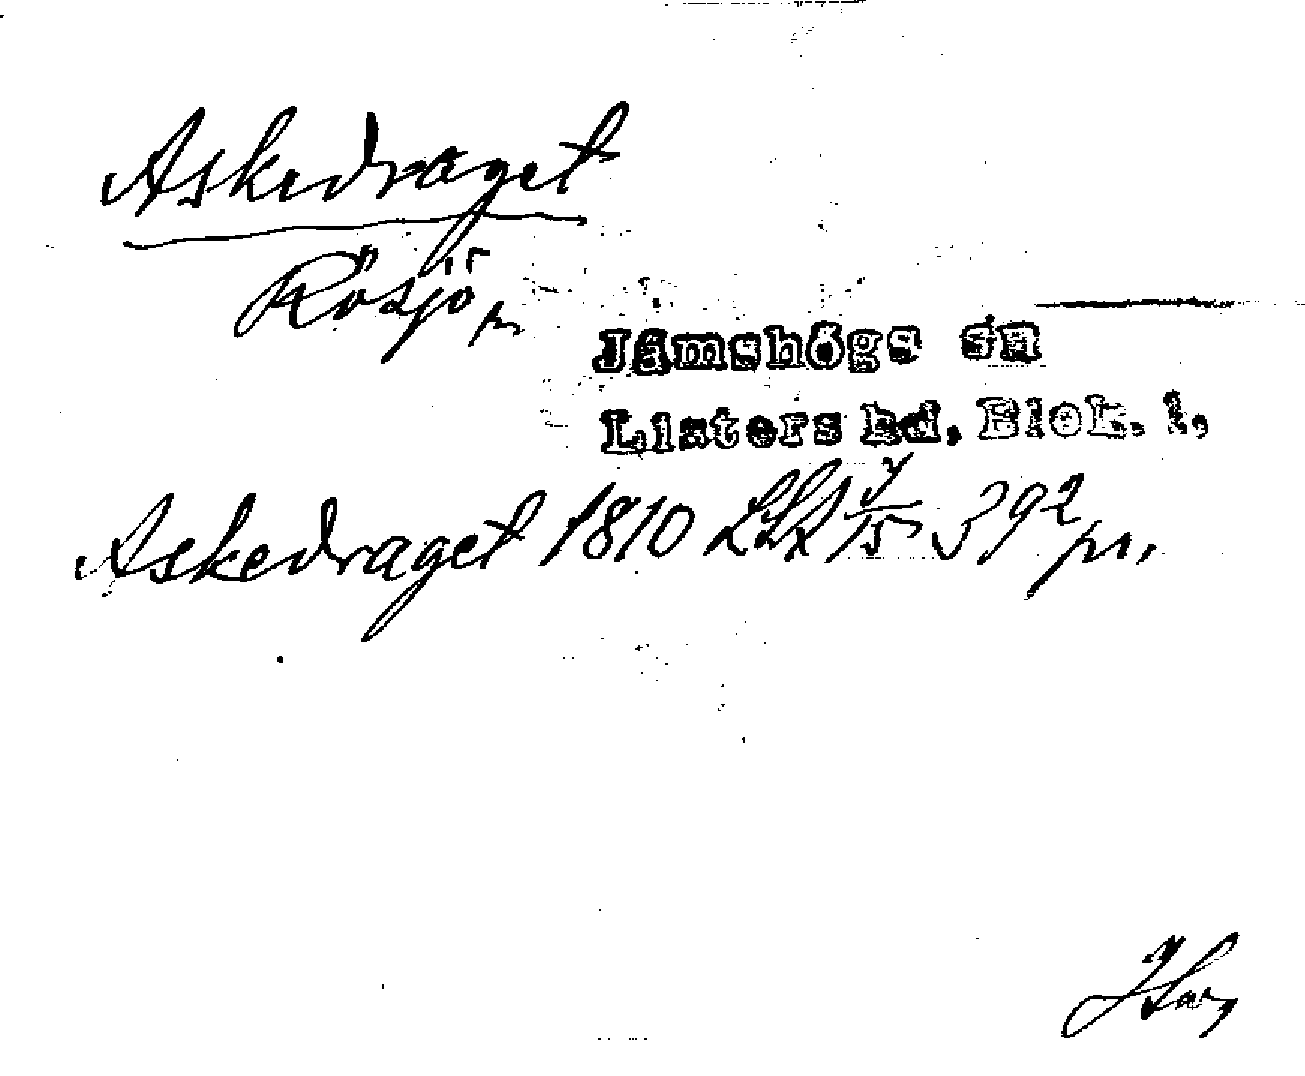 Askedraget
Rösjö
Jämshögs sn
Listers hd. Blek. l.
Askedraget 1810 LSA 392